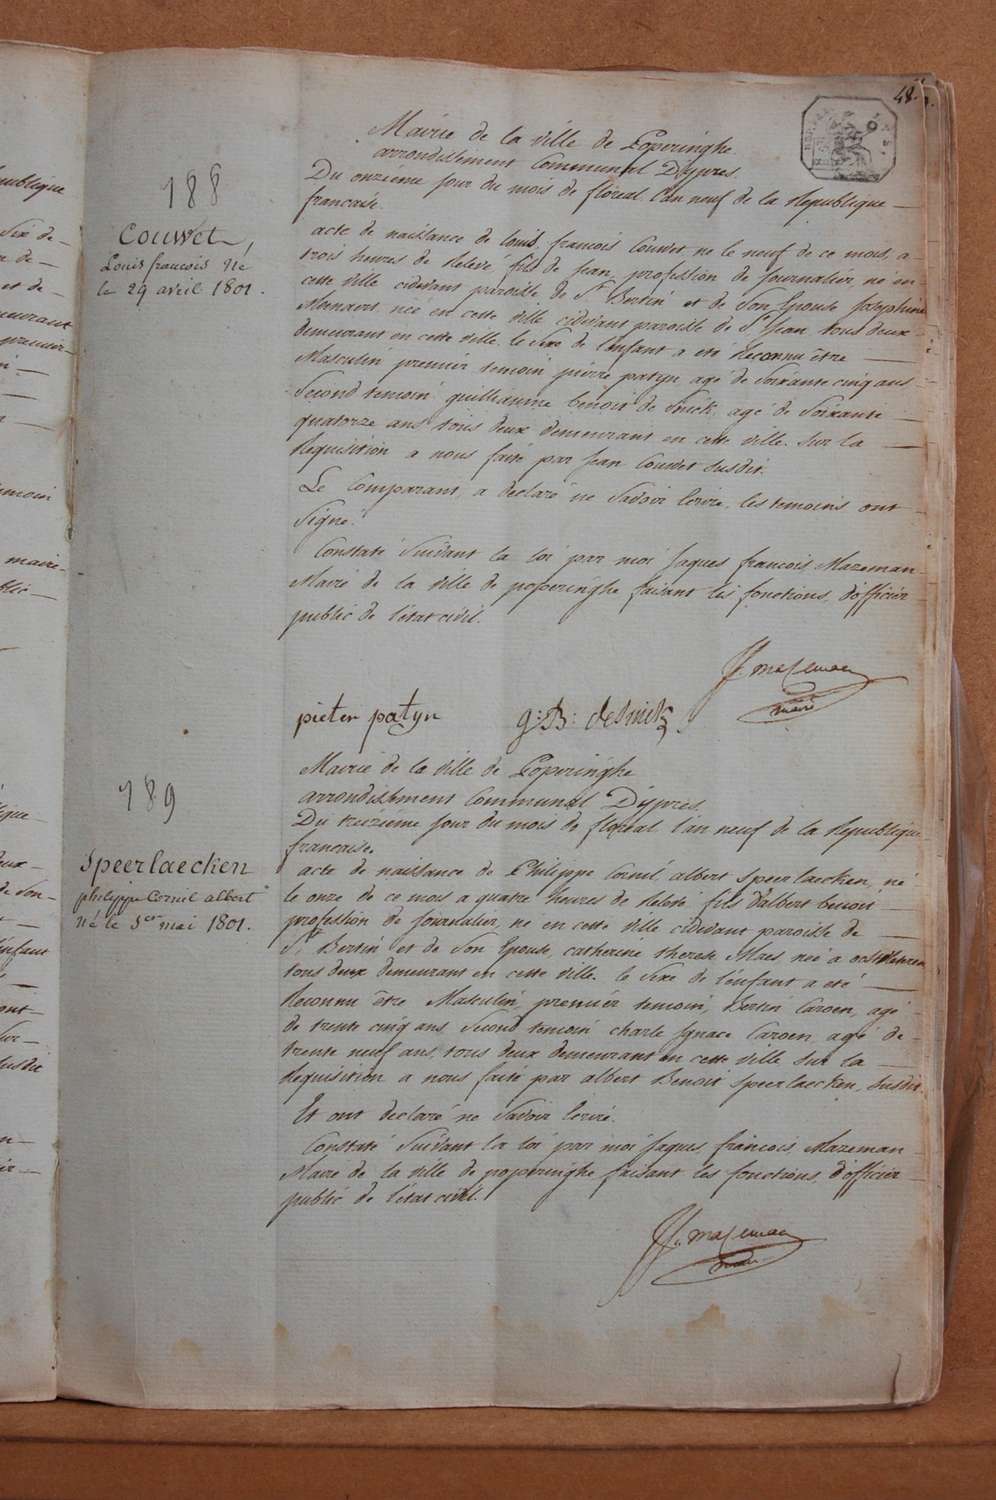 48.
Mairie de la ville de Poperinghe
arrondissement Communal D'ypres.
Du onzieme jour du mois de floreal l'an neuf de la Republique
francaise.
188
Couwet,
Louis francois né
le 29 avril 1801.
acte de naissance de louis francois Couwet, ne le neuf de ce mois, a
trois heures de Relevé fils de Jean, profession de Journalier, né en
cette ville cidevant paroisse de St Bertin et de Son Epouse Josephine
née en cette ville cidevant paroisse de St Jean tous deux
demeurant en cette ville. le Sexe de l'enfant a eté Reconnu être
Masculin premier temoin pierre patyn, agé de Soixante cinq ans
Second temoin guilliaume benoit de Snick, agé de Soixante
quatorze ans tous deux demeurant en cette ville. Sur la
Requisition a nous faite par Jean Couwet susdit.
Le Comparant, a declaré ne Savoir Ecrire, les temoins ont
Signé.
Constaté Suivant la loi par moi Jaques francois Mazeman
Maire de la ville de poperinghe faisant les fonctions, d'officier
public de l'état civil.
J.f. mazeman
maire
pieter patyn g: B: desnick
Mairie de la ville de Poperinghe
arrondissement Communal D'ypres.
Du treizieme jour du mois de floreal l'an neuf de la Republique
francaise.
189
Speerlaecken
philippe Cornil albert
né le 1er mai 1801.
acte de naissance de Philippe Cornil albert Speerlaecken, né
le onze de ce mois a quatre heures de Relevé fils d'albert benoit
profession de Journalier, né en cette ville cidevant paroisse de
St Bertin et de Son Epouse, catherine therese Maes née a
tous deux demeurant en cette ville. le Sexe de l'enfant a eté
Reconnu être Masculin, premier temoin, Bertin Caroen, agé
de trente cinq ans, Second temoin charle Ignace Caroen, agé de
trente neuf ans, tous deux demeurant en cette ville, Sur la
Requisition a nous faite par albert Benoit Speerlaecken, susdit.
Et ont declaré ne Savoir Ecrire.
Constaté Suivant la loi par moi Jaques, francois, Mazeman
Maire de la ville de poperinghe faisant les fonctions, d'officier
public de l'état civil.
J.f. mazeman
maire